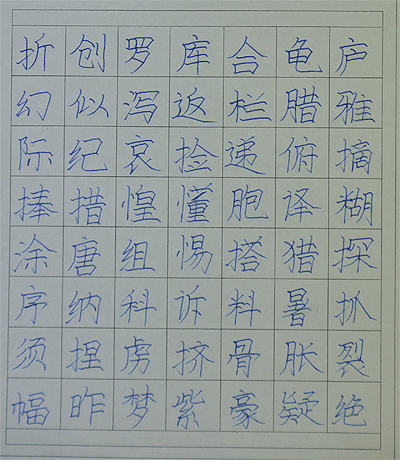 折创罗库合龟庐
幻似泻返栏腊雅
际纪哀捡递俯摘
捧措惶懂胞译糊
涂唐组惕搭猎探
序纳科诉料暑抓
须捏虏挤骨胀裂
幅昨梦紫豪疑绝